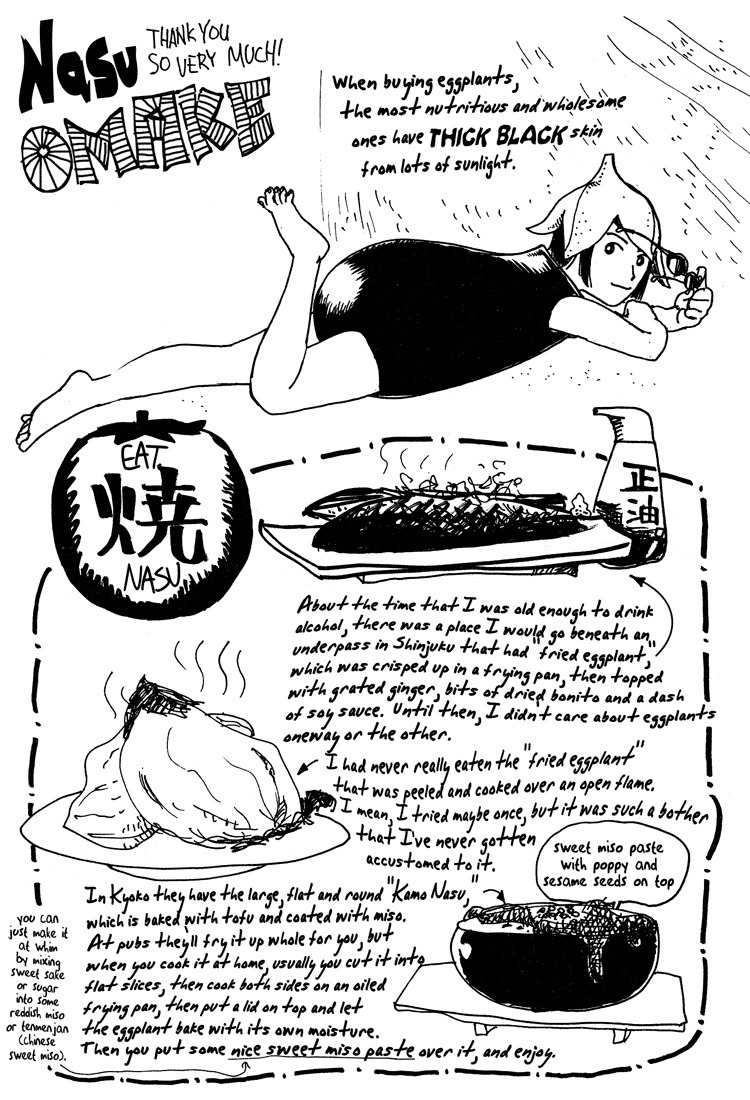 Nasu
THANK YOU
SO VERY MUCH!
OMAKE
When buying eggplants,
the most nutritious and wholesome
ones have THICK BLACK skin
from lots of sunlight.
EAT
焼
NASU
正油
About the time that I was old enough to drink
alcohol, there was a place I would go beneath an
underpass in Shinjuku that had "fried eggplant,"
which was crisped up in a frying pan, then topped
with grated ginger, bits of dried bonito and a dash
of soy sauce. Until then, I didn't care about eggplants
oneway or the other.
I had never really eaten the "fried eggplant"
that was peeled and cooked over an open flame.
I mean, I tried maybe once, but it was such a bother
that I've never gotten
accustomed to it.
sweet miso paste
with poppy and
sesame seeds on top
In Kyoko they have the large, flat and round "Kamo Nasu,"
which is baked with tofu and coated with miso.
At pubs they'll fry it up whole for you, but
when you cook it at home, usually you cut it into
flat slices, then cook both sides on an oiled
frying pan, then put a lid on top and let
the eggplant bake with its own moisture.
Then you put some nice sweet miso paste over it, and enjoy.
you can
just make it
at whim
by mixing
sweet sake
or sugar
into some
reddish miso
or tenmenjan
(chinese
sweet miso).